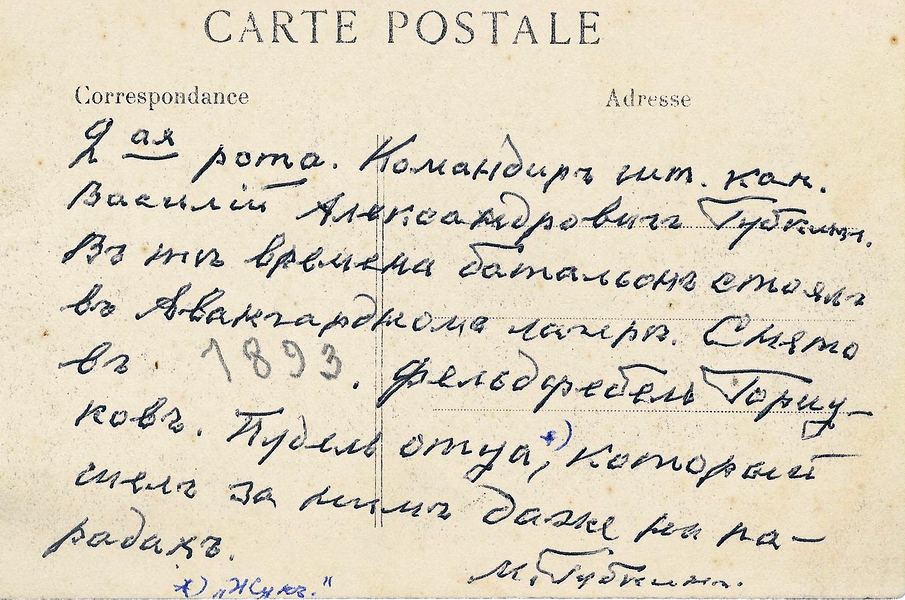 CARTE POSTALE
Correspondance Adresse
2ая рота. Командиръ шт. кап.
Василій Александровичъ Губкинъ.
Въ тѣ времена батальонъ стоялъ
въ Авангардномъ лагерѣ. Снято
въ 1893. Фельдфебель Горш-
ковъ. Пудель отца,*) который
шелъ за нимъ даже на па-
радахъ.
М. Губкинъ.
*) „Жукъ."